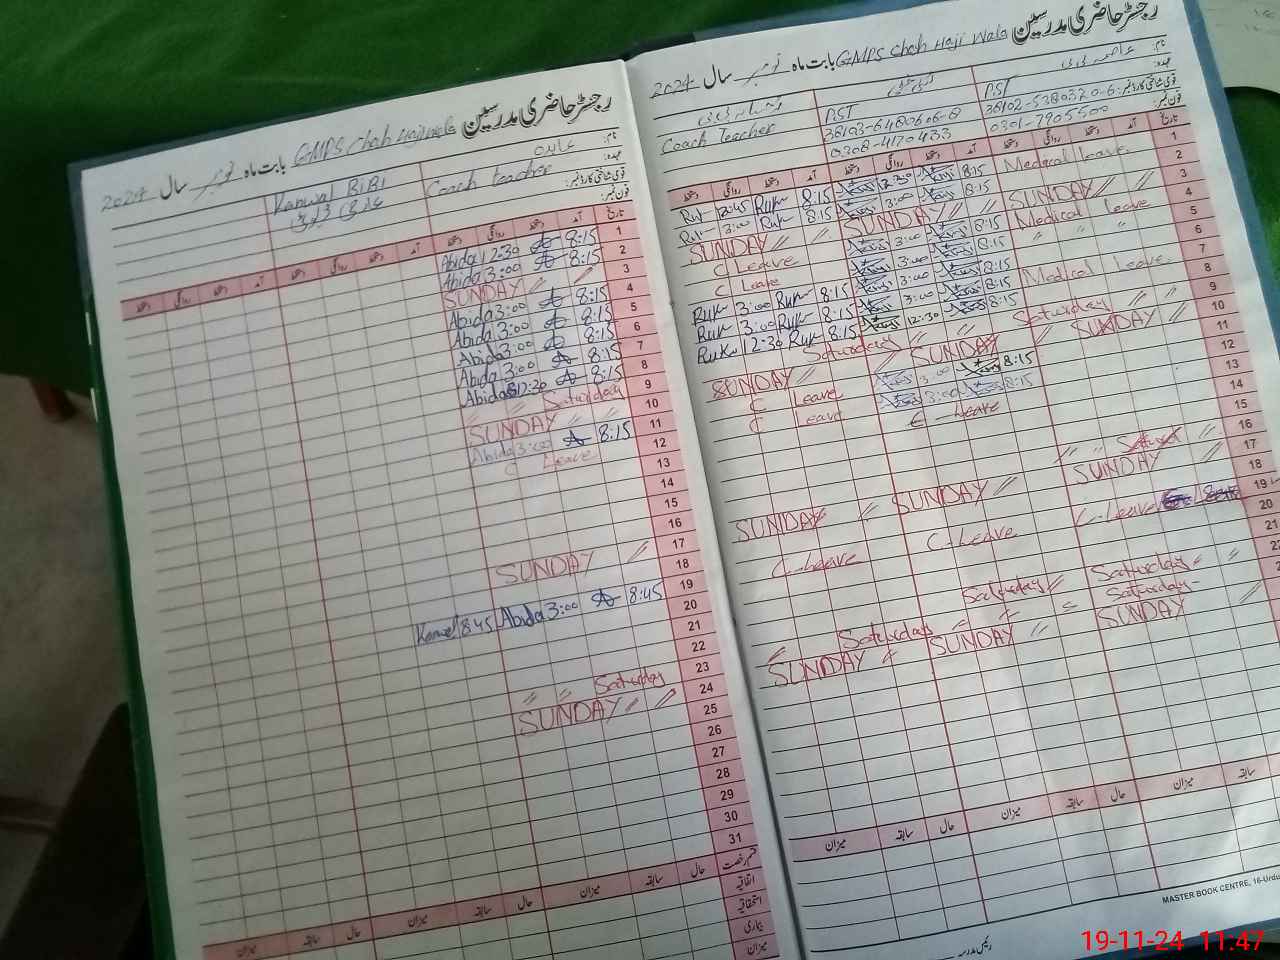 رجسٹر حاضری مدرسین GMPS Chah Haji Wala بابت ماہ نومبر سال 2024
نام:
عہدہ:
قومی شناختی کارڈ نمبر:
فون نمبر:
عاصمہ بی بی
PST
36102-5380320-6
0301-7905500
PST
36103-6480606-8
0308-4170433
Coach Teacher
تاریخ آمد دستخط روانگی دستخط آمد دستخط روانگی دستخط آمد دستخط روانگی دستخط
1 Medical Leave 8:15 12:30 8:15 Ruk 12:45 Ruk
2 8:15 3:00 8:15 Ruk 3:00 Ruk
3 SUNDAY // // SUNDAY // // SUNDAY //
4 Medical Leave 8:15 3:00 C Leave
5 " " " 8:15 3:00 C Leave
6 8:15 3:00 8:15 Ruk 3:00 Ruk
7 Medical Leave 8:15 3:00 8:15 Ruk 3:00 Ruk
8 8:15 12:30 8:15 Ruk 12:30 Ruk
9 Saturday // // Saturday
10 SUNDAY // SUNDAY // SUNDAY //
11 8:15 3:00 C Leave
12 8:15 3:00 C Leave
13 C-Leave
14
15
16
17 SUNDAY // SUNDAY // SUNDAY
18
19 C-Leave C-Leave C-Leave
20
21
Saturday Saturday Saturday
Saturday
SUNDAY SUNDAY // SUNDAY //
سابقہ حال میزان سابقہ حال میزان سابقہ حال میزان
MASTER BOOK CENTRE, 16-Urdu
رئیس مدرسہ
رجسٹر حاضری مدرسین GMPS Chah Haji Wala بابت ماہ نومبر سال 2024
نام: عابدہ
عہدہ: Coach teacher
قومی شناختی کارڈ نمبر:
فون نمبر:
Kanwal BiBi
تاریخ آمد دستخط روانگی دستخط آمد دستخط روانگی دستخط آمد دستخط روانگی دستخط
1 8:15 A 12:30 Abida
2 8:15 A 3:00 Abida
3 SUNDAY //
4 8:15 A 3:00 Abida
5 8:15 A 3:00 Abida
6 8:15 A 3:00 Abida
7 8:15 A 3:00 Abida
8 8:15 A 12:30 Abida
9 Saturday // //
10 SUNDAY //
11 8:15 A 3:00 Abida
12 C Leave
13
14
15
16
17 SUNDAY //
18
19 8:45 A 3:00 Abida 8:45 Kanwal
20
21
22
23 Saturday // //
24 SUNDAY // //
25
26
27
28
29
30
31
قسم رخصت حال سابقہ میزان حال سابقہ میزان حال سابقہ میزان
اتفاقیہ
استحقاقیہ
بیماری
میزان
19-11-24 11:47